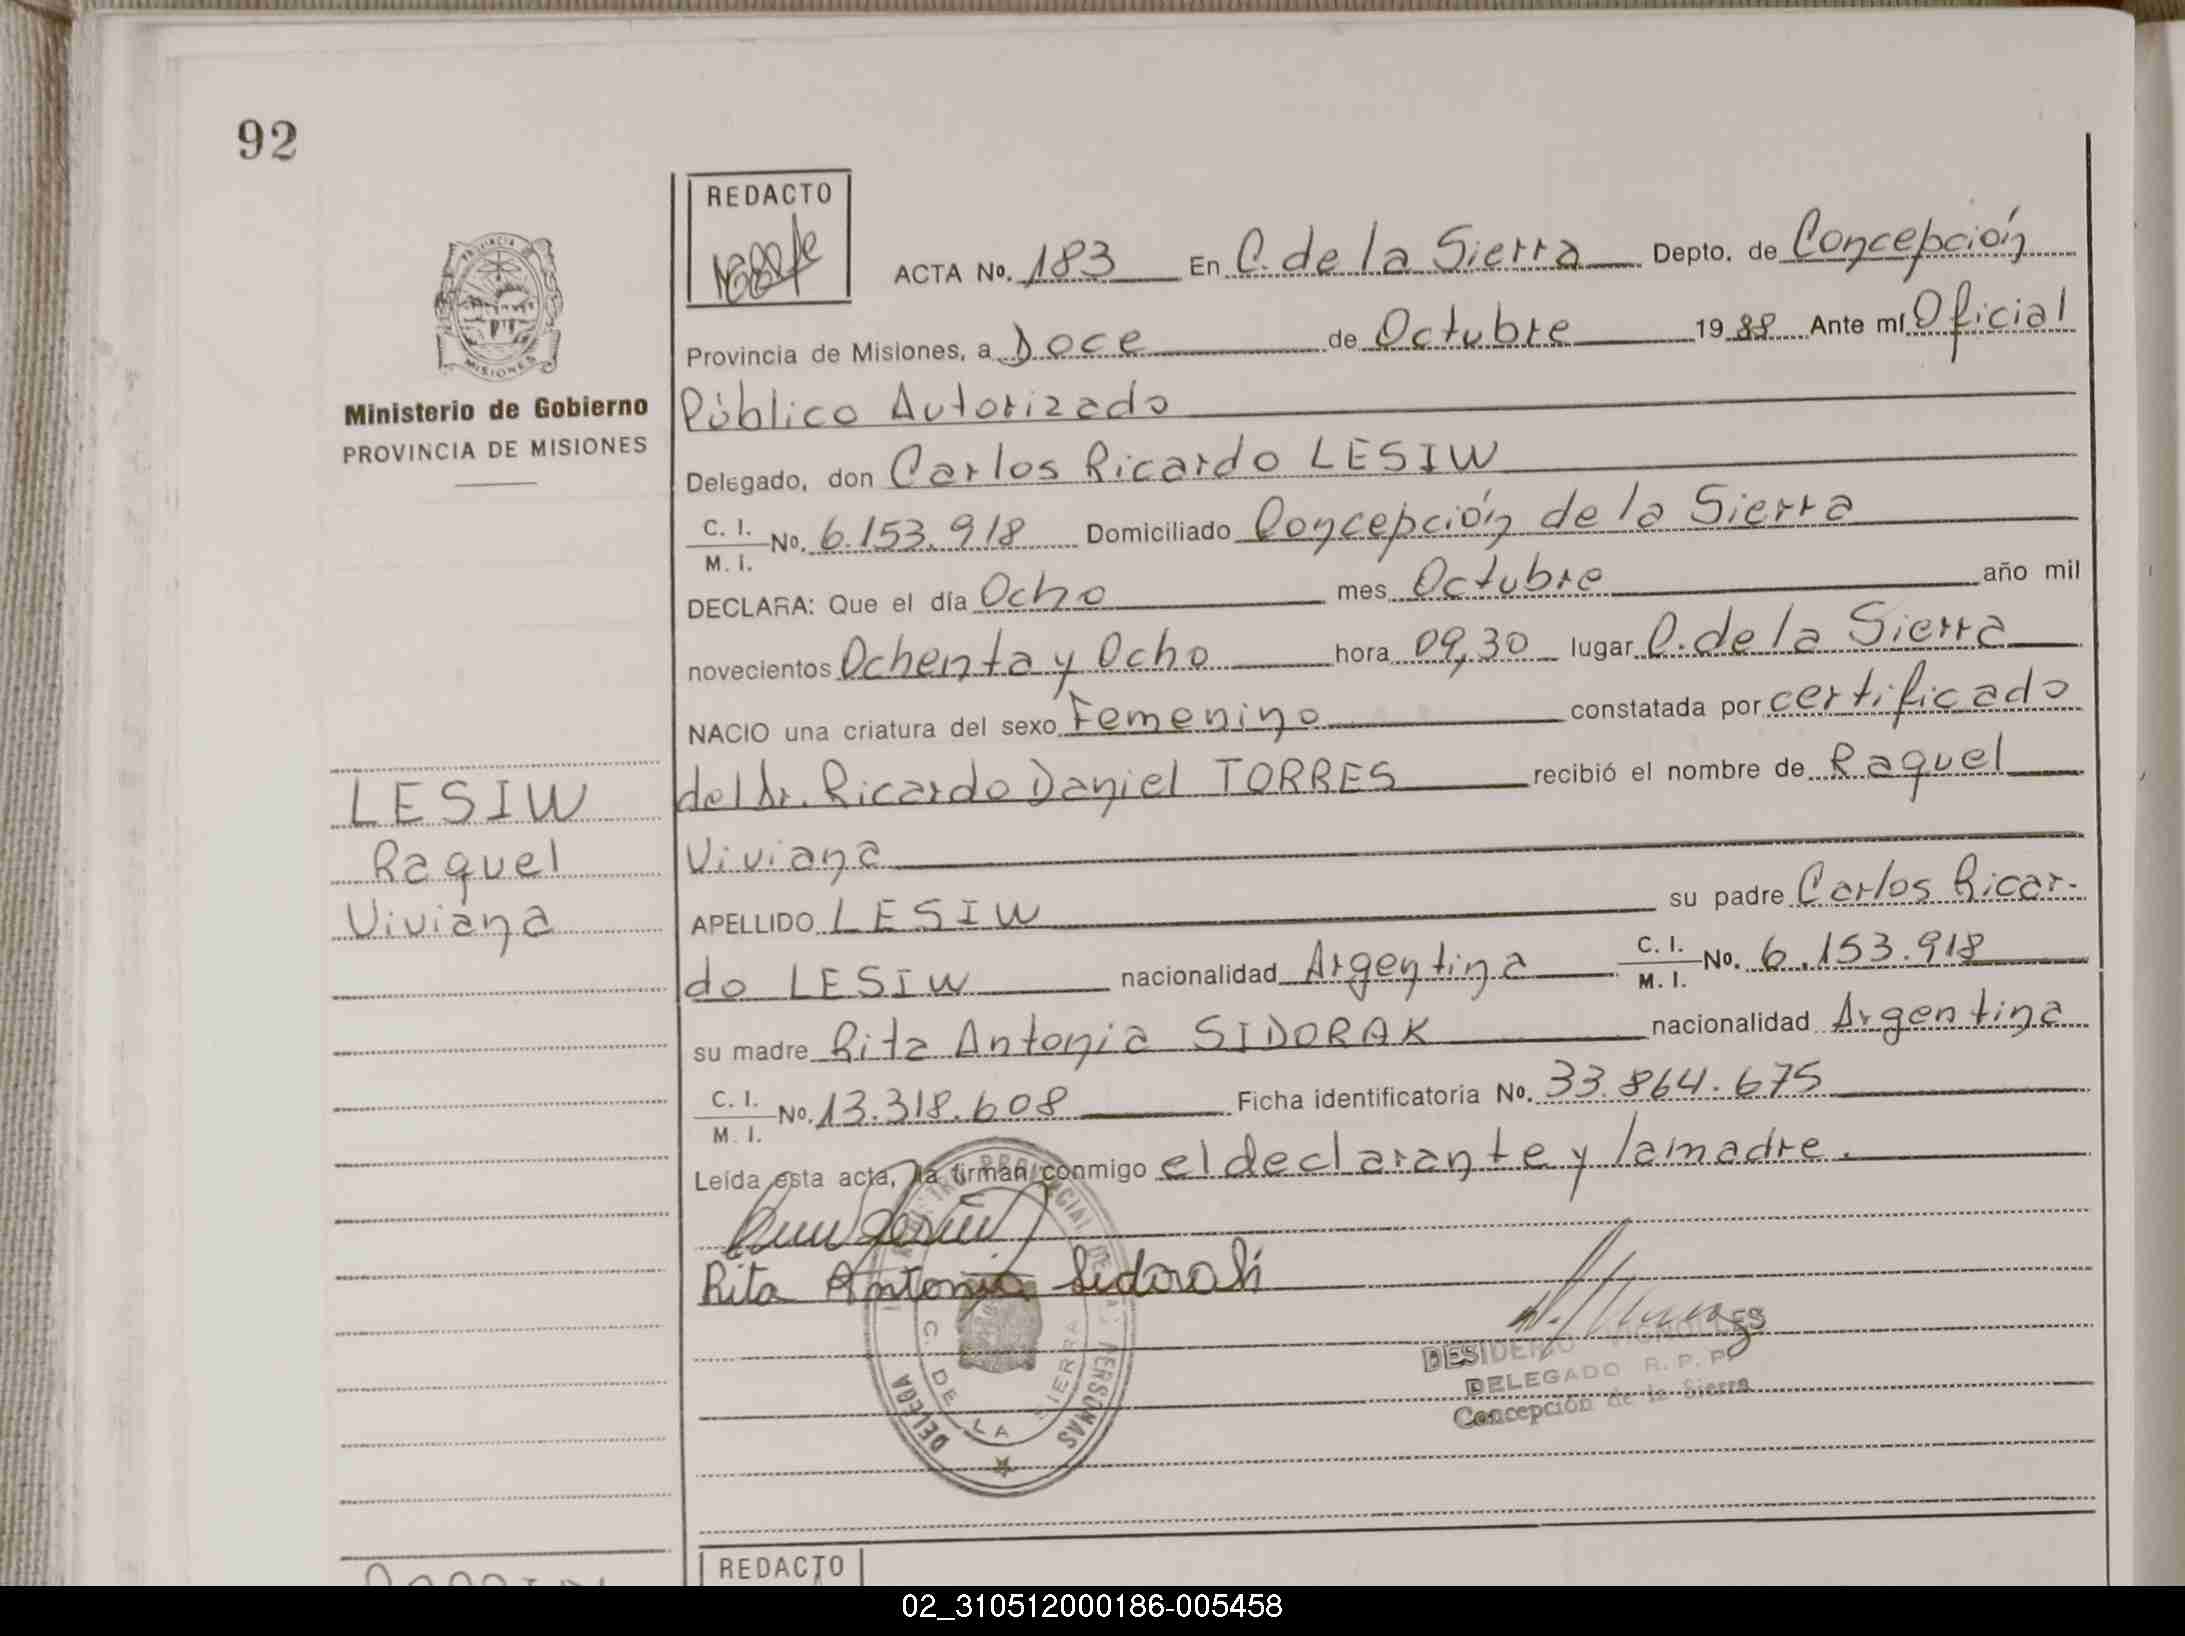 92
REDACTO
ACTA No. 183 En C. de la Sierra Depto. de Concepción
Provincia de Misiones, a Doce de Octubre 1988 Ante mí Oficial
Público Autorizado
Delegado, don Carlos Ricardo LESIW
C. I.
M. I.
No. 6.153.918 Domiciliado Concepción de la Sierra
DECLARA: Que el día Ocho mes Octubre año mil
novecientos Ochenta y Ocho hora 09,30 lugar C. de la Sierra
NACIO una criatura del sexo Femenino constatada por certificado
del Dr. Ricardo Daniel TORRES recibió el nombre de Raquel
Viviana
APELLIDO LESIW su padre Carlos Ricar-
do LESIW nacionalidad Argentina C. I. M. I. No. 6.153.918
su madre Rita Antonia SIDORAK nacionalidad Argentina
C. I.
M. I.
No. 13.318.608 Ficha identificatoria No. 33.864.675
Leída esta acta, la firman conmigo el declarante y la madre.
Rita Antonia Sidorak
REGISTRO PROVINCIAL DE LAS PERSONAS
DELEGA
C. DE LA SIERRA
DESIDERIO
DELEGADO R. P. P.
Concepción de la Sierra
PROVINCIA DE
MISIONES
Ministerio de Gobierno
PROVINCIA DE MISIONES
LESIW
Raquel
Viviana
REDACTO
02_310512000186-005458